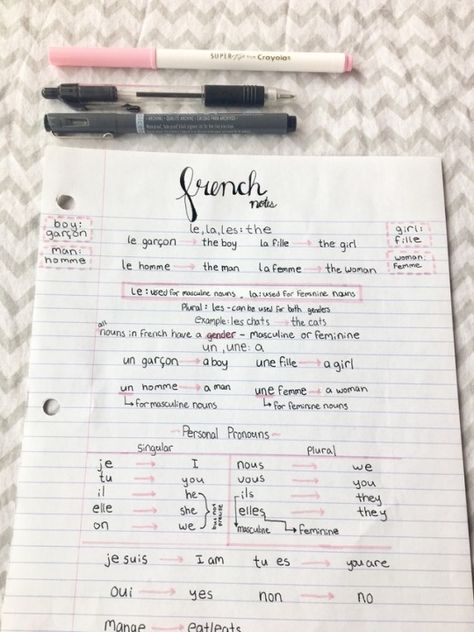 SUPER Tips from Crayola
french
notes
le, la, les: the
boy:
garçon
girl:
fille
le garçon → the boy   la fille → the girl
man:
homme
woman:
femme
le homme → the man   la femme → the woman
le: used for masculine nouns, la: used for feminine nouns
Plural: les - can be used for both genders
example: les chats → the cats
all
nouns in French have a gender - masculine or feminine
un, une: a
un garçon → a boy   une fille → a girl
un homme → a man   une femme → a woman
↳ for masculine nouns   ↳ for feminine nouns
- Personal Pronouns -
singular   Plural
je → I   nous → we
tu → you   vous → you
il → he   ils → they
elle → she   elles → they
on → we   masculine   feminine
je suis → I am   tu es → you are
oui → yes   non → no
mange → eat/eats